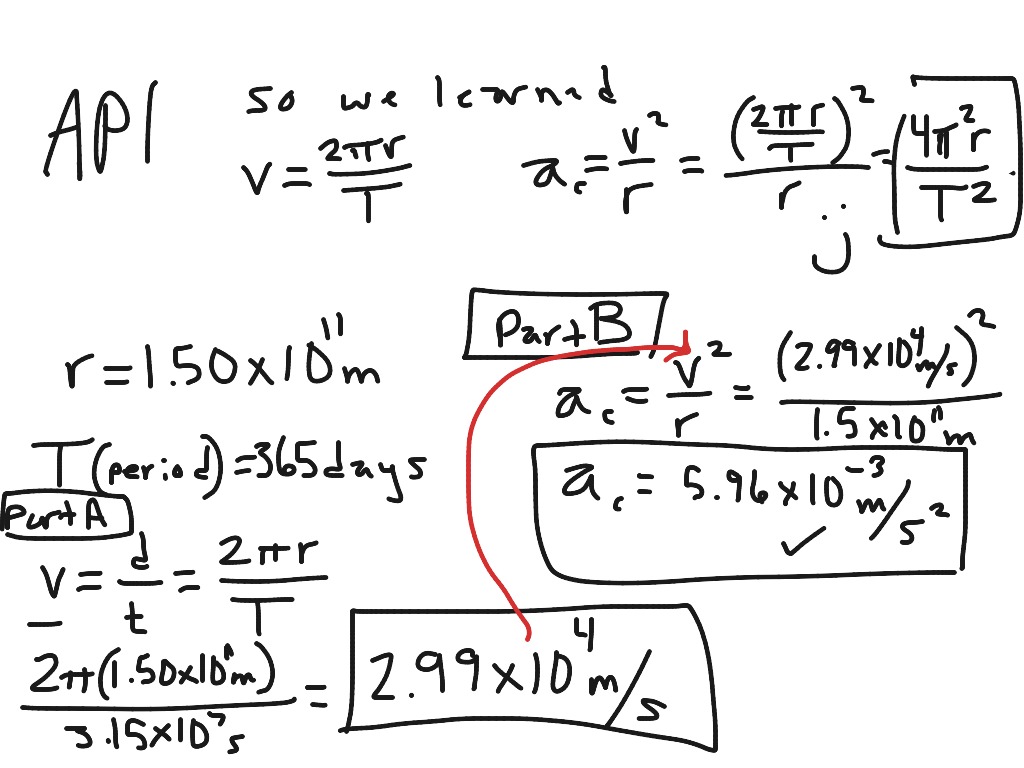 AP1
so we learned
v = 2πr/T
a_c = v²/r = (2πr/T)²/r = 4π²r/T²
r = 1.50x10¹¹ m
T(period) = 365 days
Part A
v = d/t = 2πr/T
2π(1.50x10¹¹ m)/3.15x10⁷ s = 2.99x10⁴ m/s
Part B
a_c = v²/r = (2.99x10⁴ m/s)²/1.5x10¹¹ m
a_c = 5.96x10⁻³ m/s²